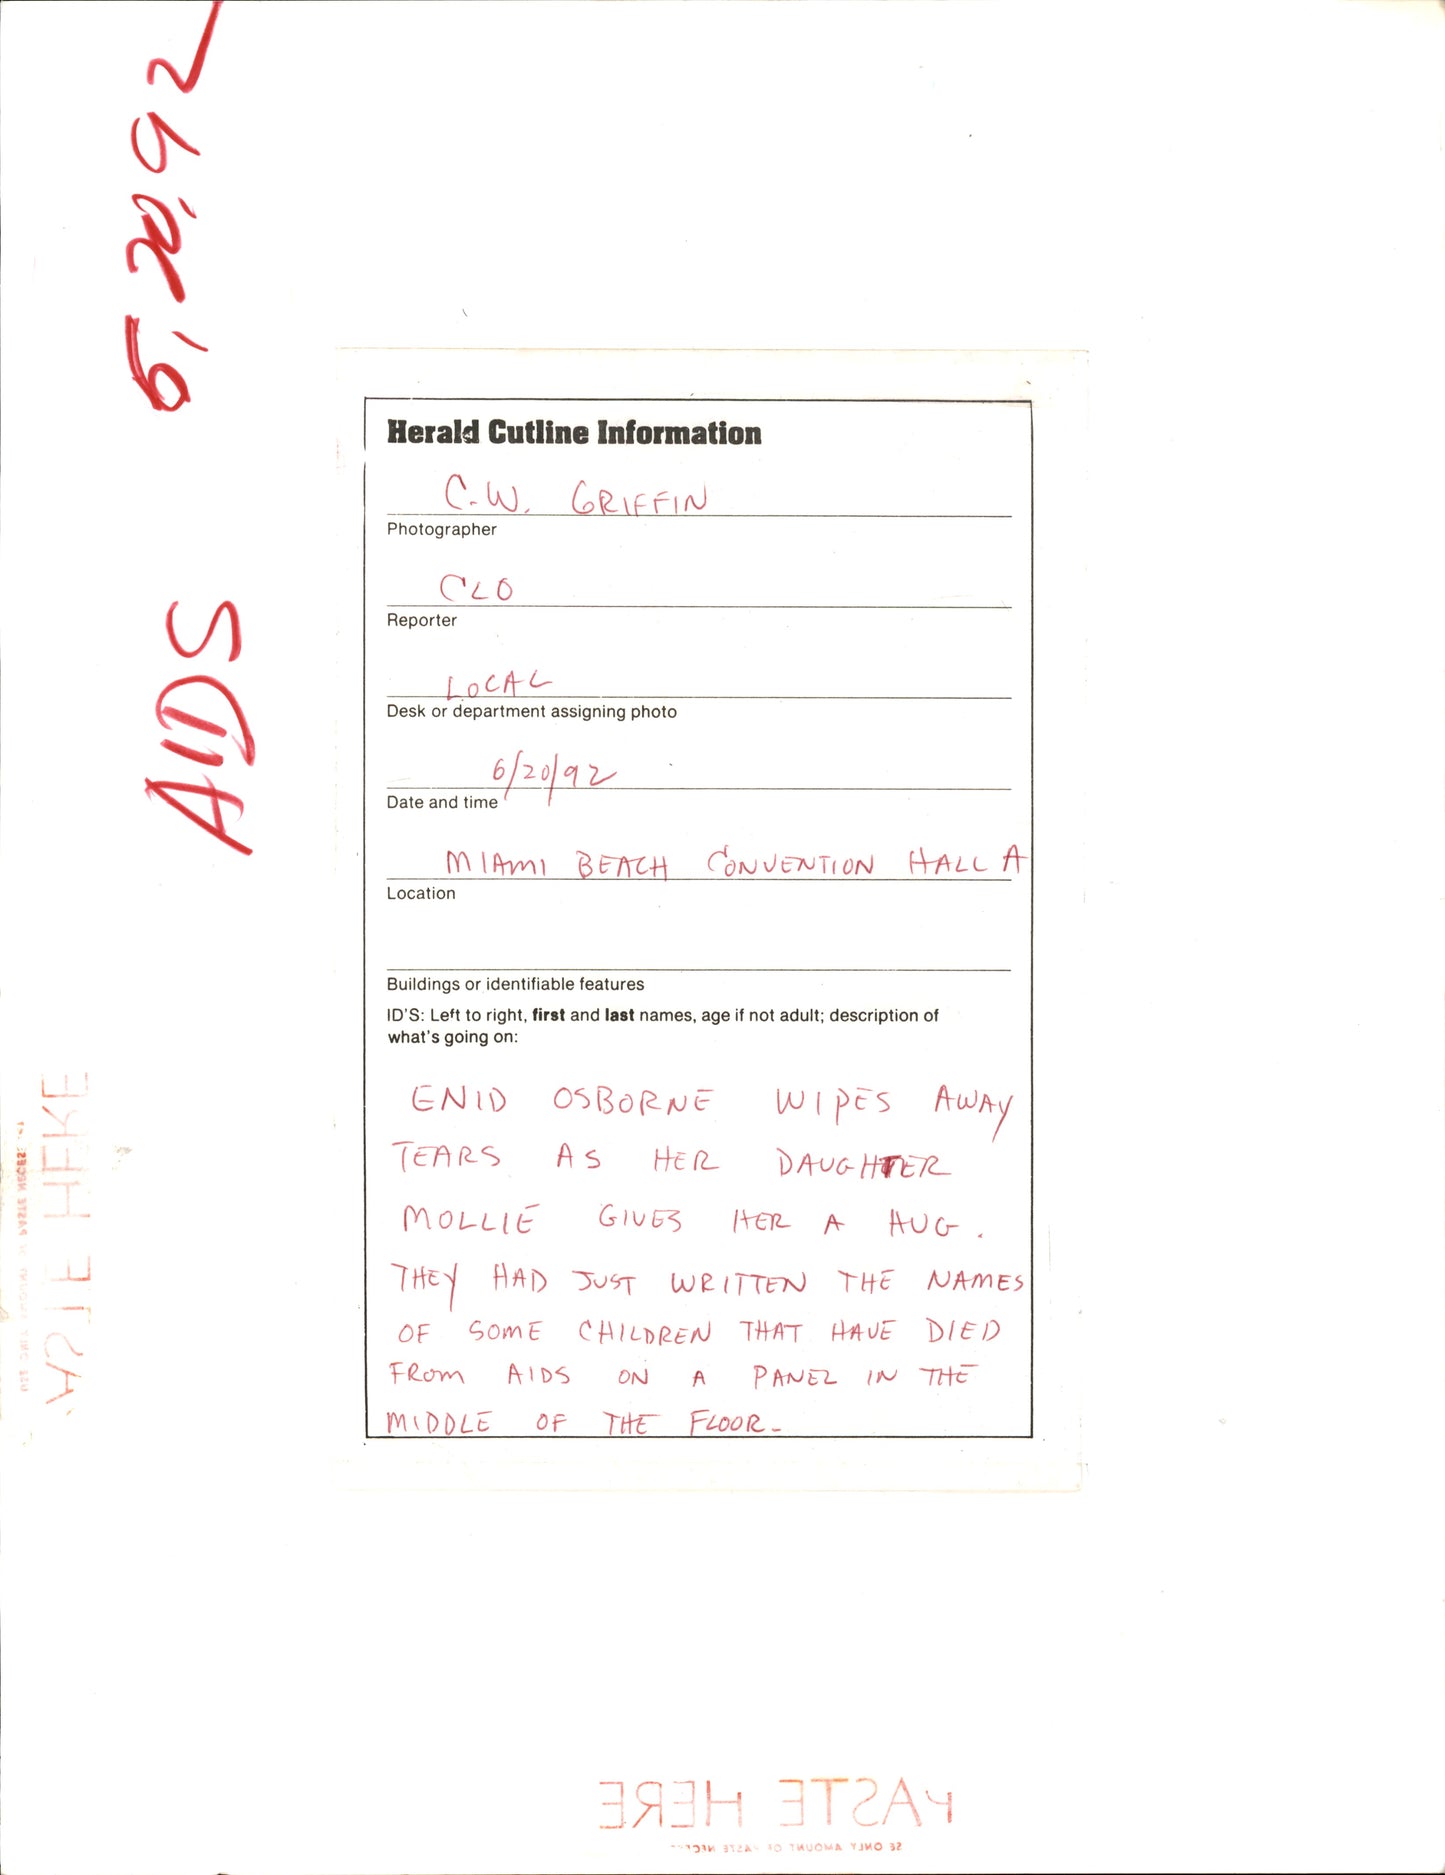 6, 20, 92
AIDS
Herald Cutline Information
C.W. GRIFFIN
Photographer
CLO
Reporter
LOCAL
Desk or department assigning photo
6/20/92
Date and time
MIAMI BEACH CONVENTION HALL A
Location
Buildings or identifiable features
ID'S: Left to right, first and last names, age if not adult; description of
what's going on:
ENID OSBORNE WIPES AWAY
TEARS AS HER DAUGHTER
MOLLIE GIVES HER A HUG.
THEY HAD JUST WRITTEN THE NAMES
OF SOME CHILDREN THAT HAVE DIED
FROM AIDS ON A PANEL IN THE
MIDDLE OF THE FLOOR.
PASTE HERE
PASTE HERE
SE ONLY AMOUNT OF PASTE